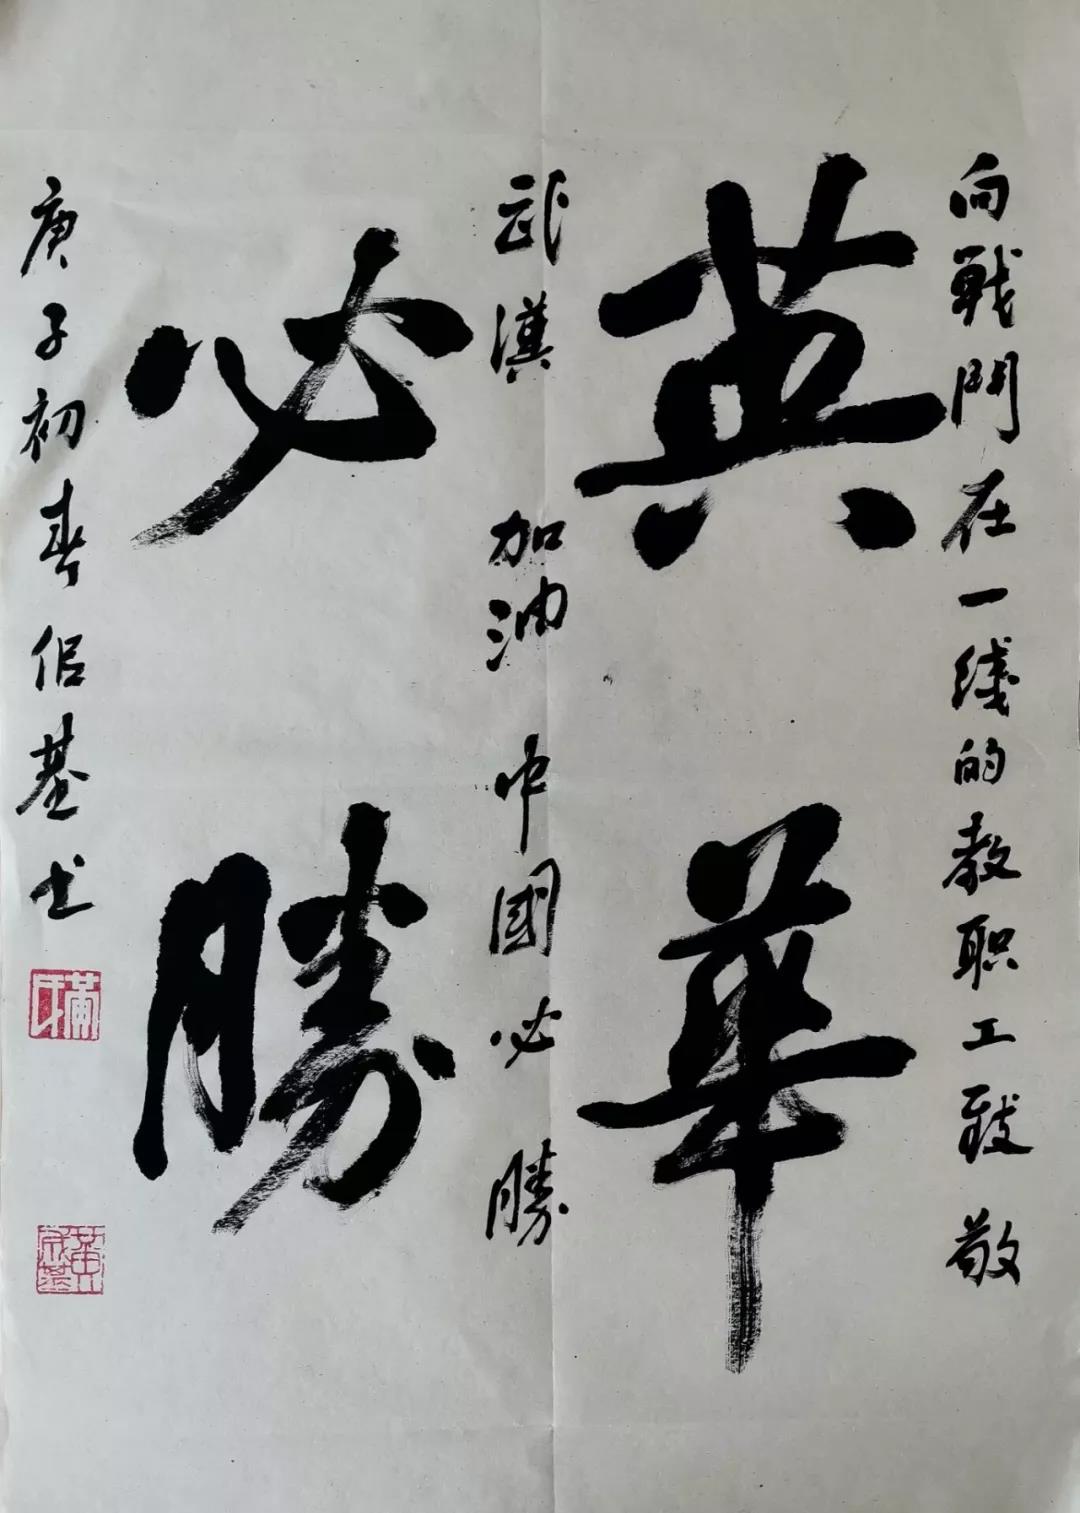 向戰鬥在一线的教职工致敬
英華
武漢 加油 中國必勝
必勝
庚子初春 基书